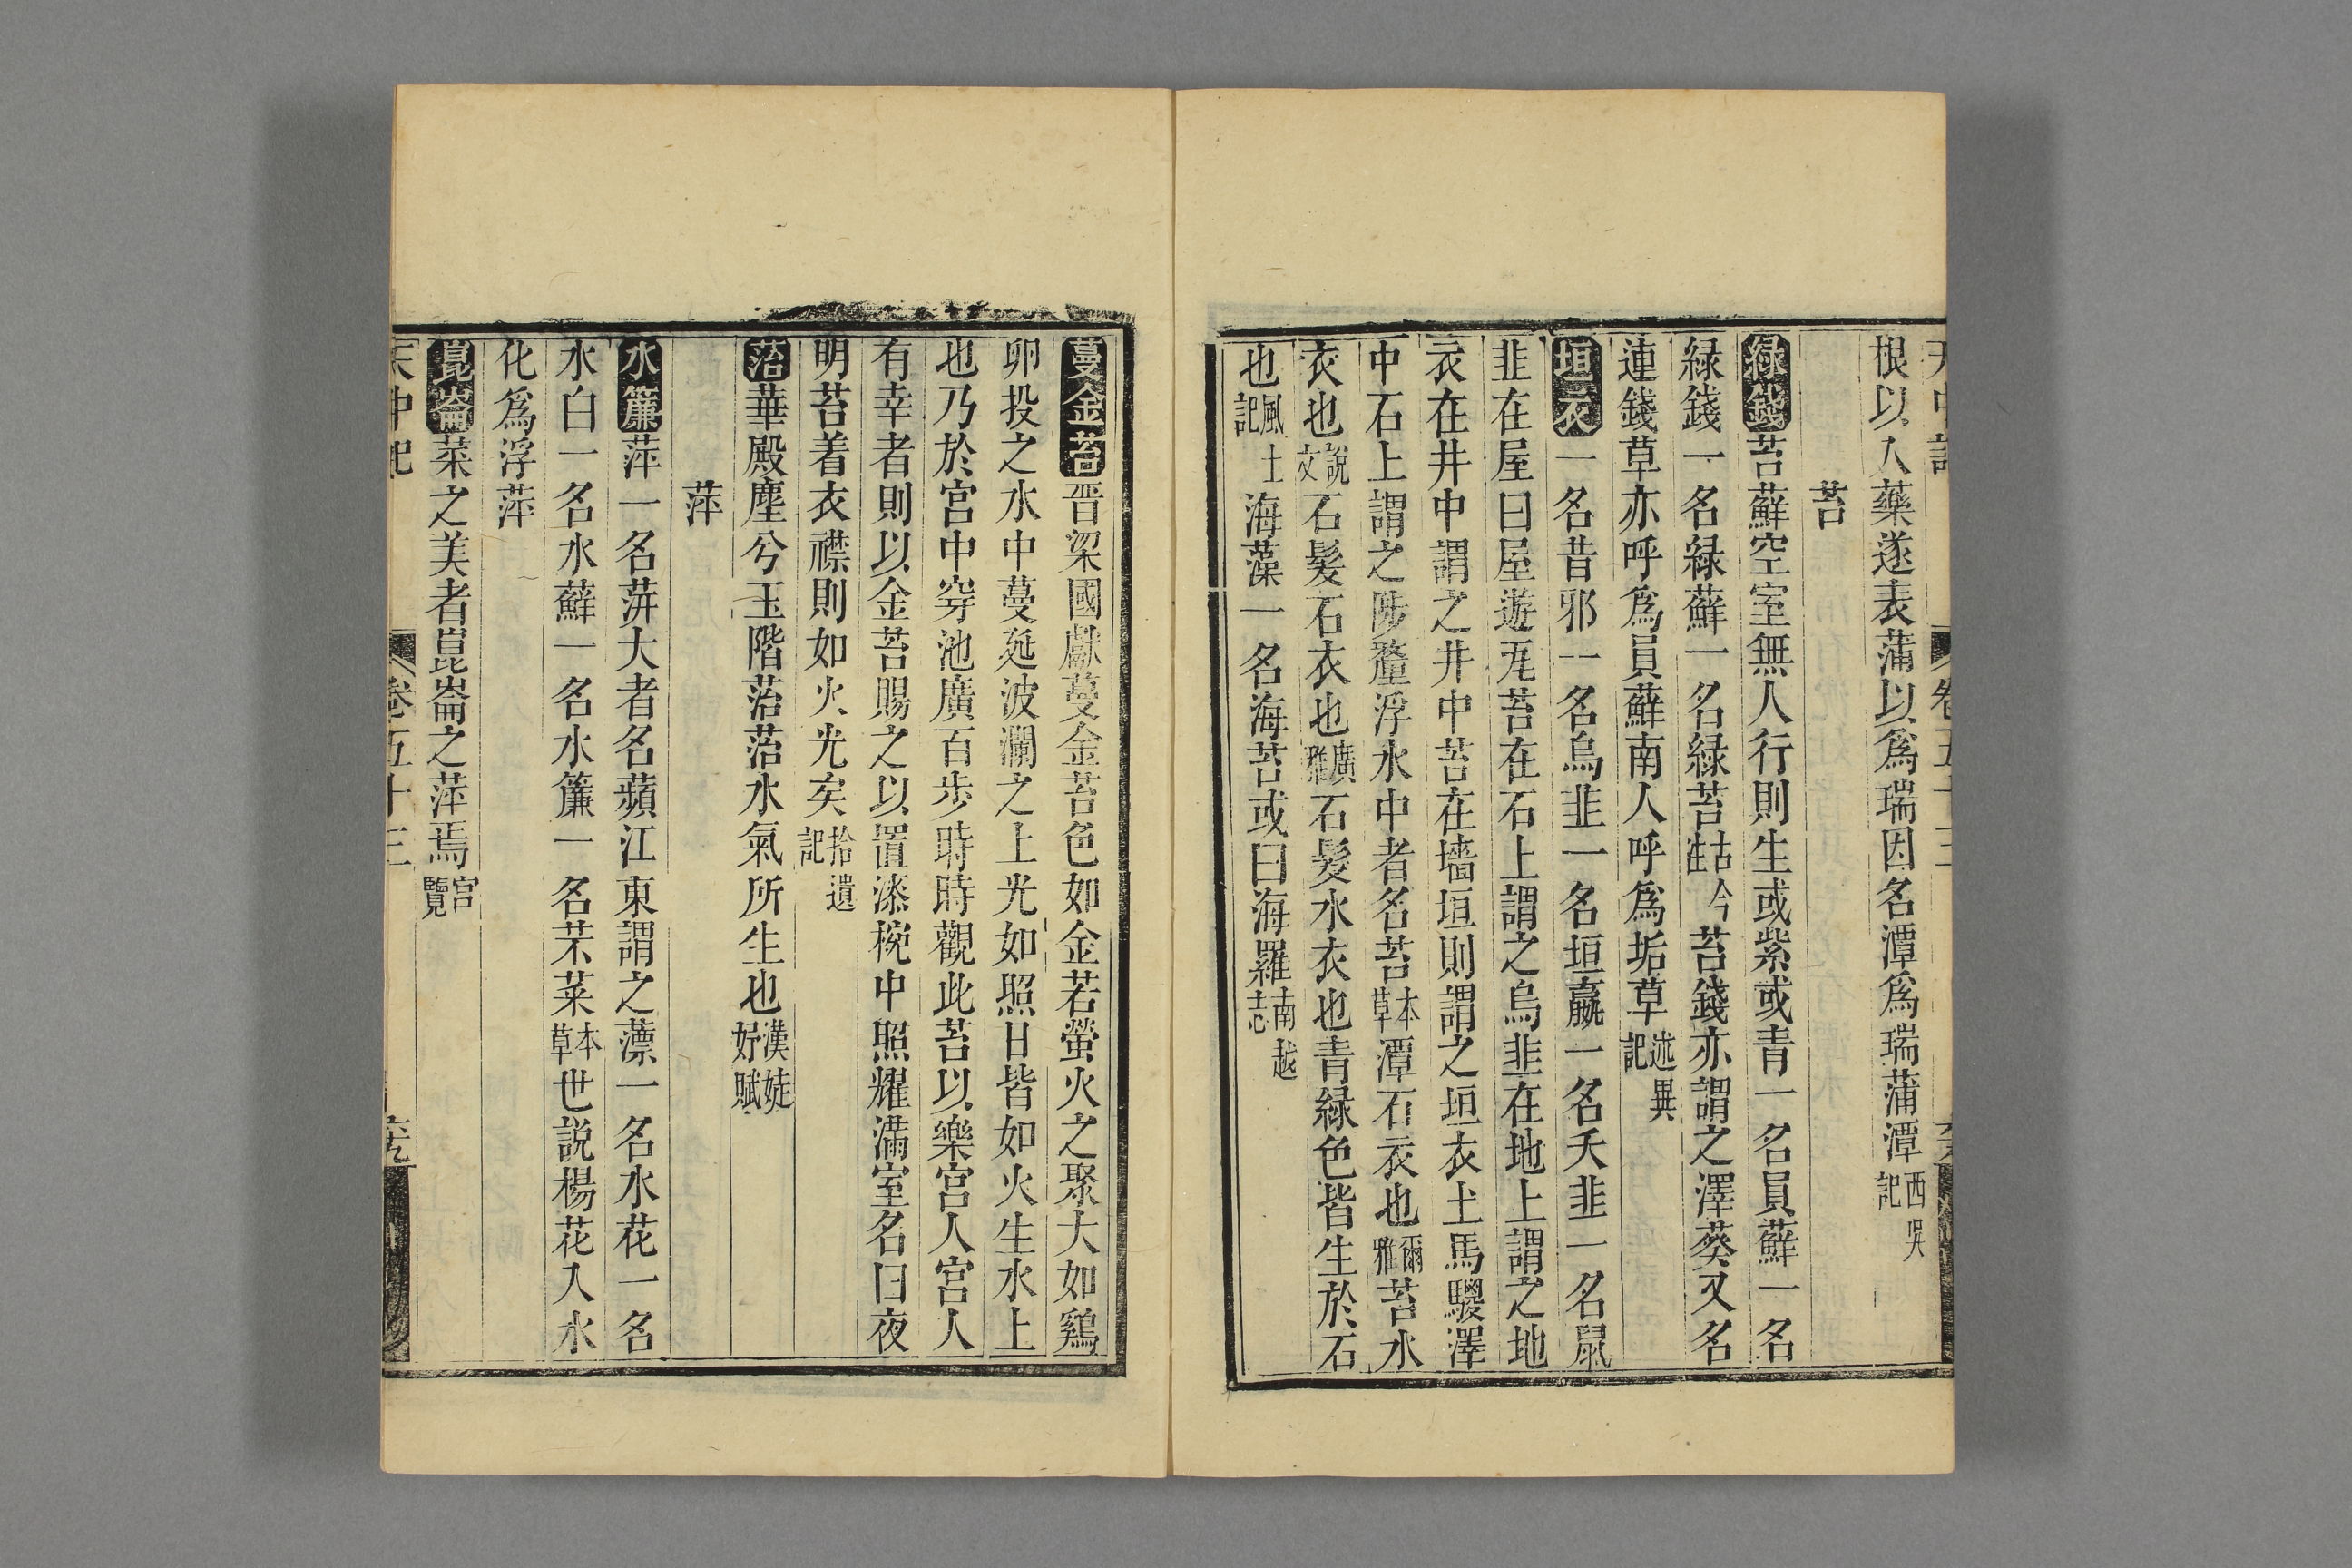 根以入藥遂表蒲以爲瑞因名潭爲瑞蒲潭西吳記
苔
緑錢苔蘚空室無人行則生或紫或青一名員蘚一名
緑錢一名緑蘚一名緑苔古今注苔錢亦謂之澤葵又名
連錢草亦呼爲員蘚南人呼爲垢草述異記
垣衣一名昔邪一名烏韭一名垣嬴一名天韭一名鼠
韭在屋曰屋遊瓦苔在石上謂之烏韭在地上謂之地
衣在井中謂之井中苔在墻垣則謂之垣衣土馬騣澤
中石上謂之陟釐浮水中者名苔本草潭石衣也爾雅苔水
衣也説文石髮石衣也廣雅石髮水衣也青緑色皆生於石
也風土記海藻一名海苔或曰海羅南越志
蔓金苔晋梁國獻蔓金苔色如金若螢火之聚大如鷄
卵投之水中蔓延波瀾之上光如照日皆如火生水上
也乃於宮中穿池廣百步時時觀此苔以樂宮人宮人
有幸者則以金苔賜之以置漆椀中照耀滿室名曰夜
明苔着衣襟則如火光矣拾遺記
菭華殿塵兮玉階菭菭水氣所生也漢婕妤賦
萍
水簾萍一名蓱大者名蘋江東謂之薸一名水花一名
水白一名水蘚一名水簾一名芣菜本草世説楊花入水
化爲浮萍
崑崙菜之美者崑崙之萍焉宮覽
天中記 卷五十三